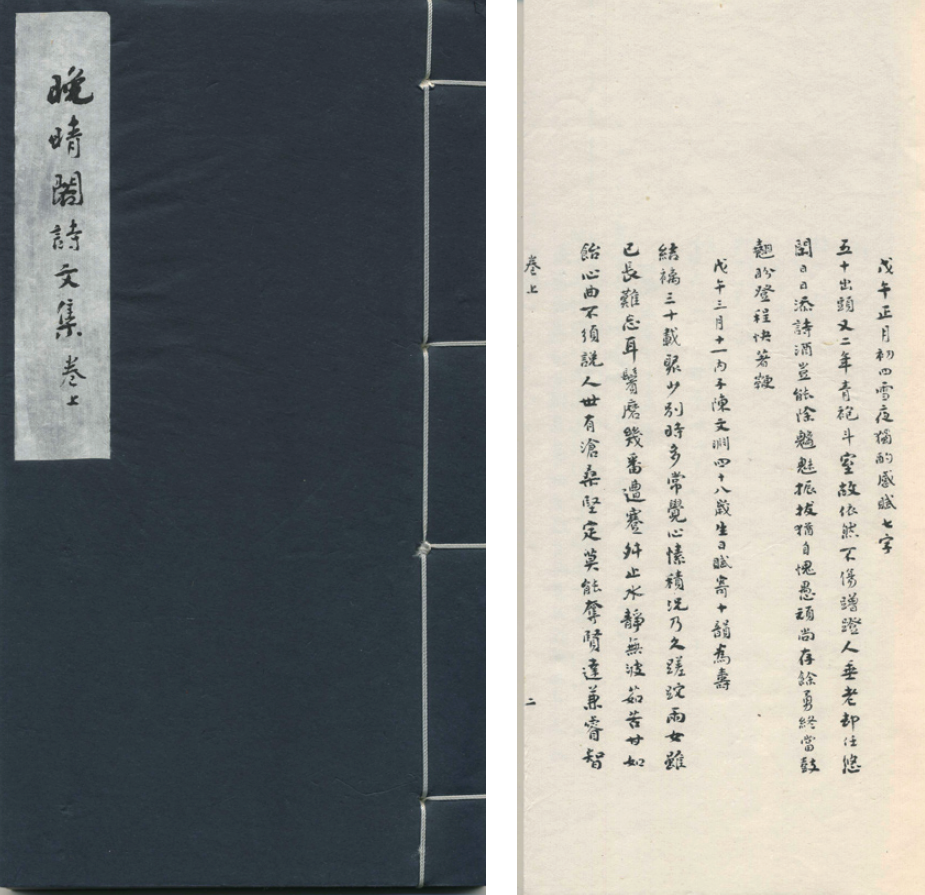 晚晴閣詩文集 卷上
戊午正月初四雪夜獨酌感賦七字
五十出頭又二年青袍斗室故依然不傷蹭蹬人垂老却任悠
閒日日添詩酒豈能除魑魅振拔猶自愧愚頑尚存餘勇終當鼓
翹盼登程快著鞭
戊午三月十一內子陳文淵四十八歲生日賦寄十韻為壽
結褵三十載聚少別時多常覺心愫積況乃久蹉跎兩女雖
已長難忘耳鬢磨幾番遭蹇舛止水靜無波茹苦甘如
飴心曲不須說人世有滄桑堅定莫能奪賢達兼睿智
卷上
二